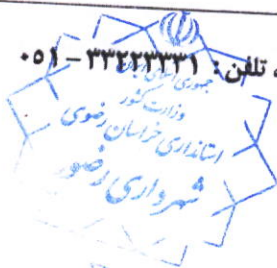 ، تلفن: ۳۳۲۲۳۳۳۱ - ۰۵۱
جمهوری اسلامی ایران
وزارت کشور
استانداری خراسان رضوی
شهرداری رضو